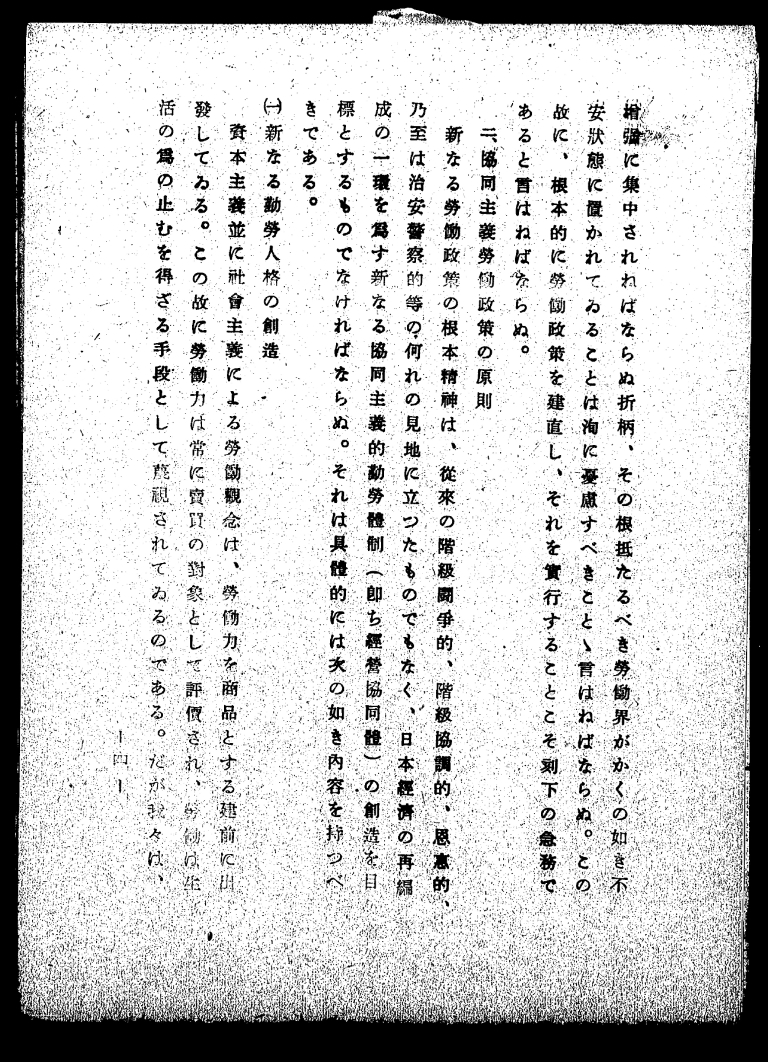 增强に集中されねばならぬ折柄、その根抵たるべき勞働界がかくの如き不
安狀態に置かれてゐることは洵に憂慮すべきことゝ言はねばならぬ。この
故に、根本的に勞働政策を建直し、それを實行することこそ刻下の急務で
あると言はねばならぬ。
二、協同主義勞働政策の原則
新なる勞働政策の根本精神は、從來の階級鬪爭的、階級協調的、恩惠的、
乃至は治安警察的等の何れの見地に立つたものでもなく、日本經濟の再編
成の一環を爲す新なる協同主義的勤勞體制（卽ち經營協同體）の創造を目
標とするものでなければならぬ。それは具體的には次の如き內容を持つべ
きである。
㈠新なる勤勞人格の創造
資本主義並に社會主義による勞働觀念は、勞働力を商品とする建前に出
發してゐる。この故に勞働力は常に賣買の對象として評價され、勞働は生
活の爲の止むを得ざる手段として蔑視されてゐるのである。だが我々は、
―四―